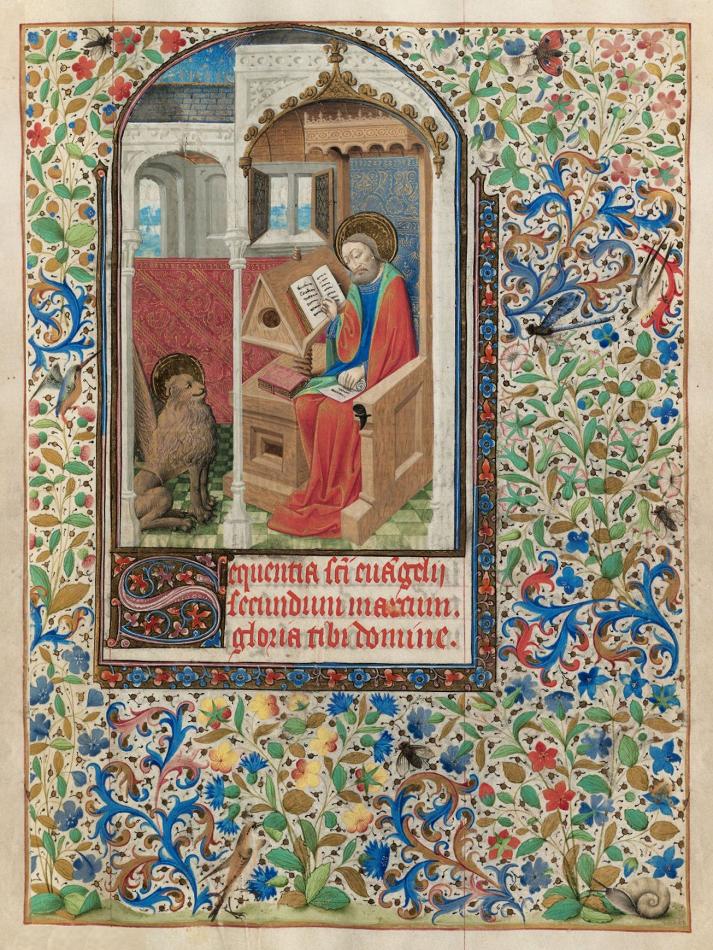 Sequentia sci euāgelij
secundum marcum.
gloria tibi domine.